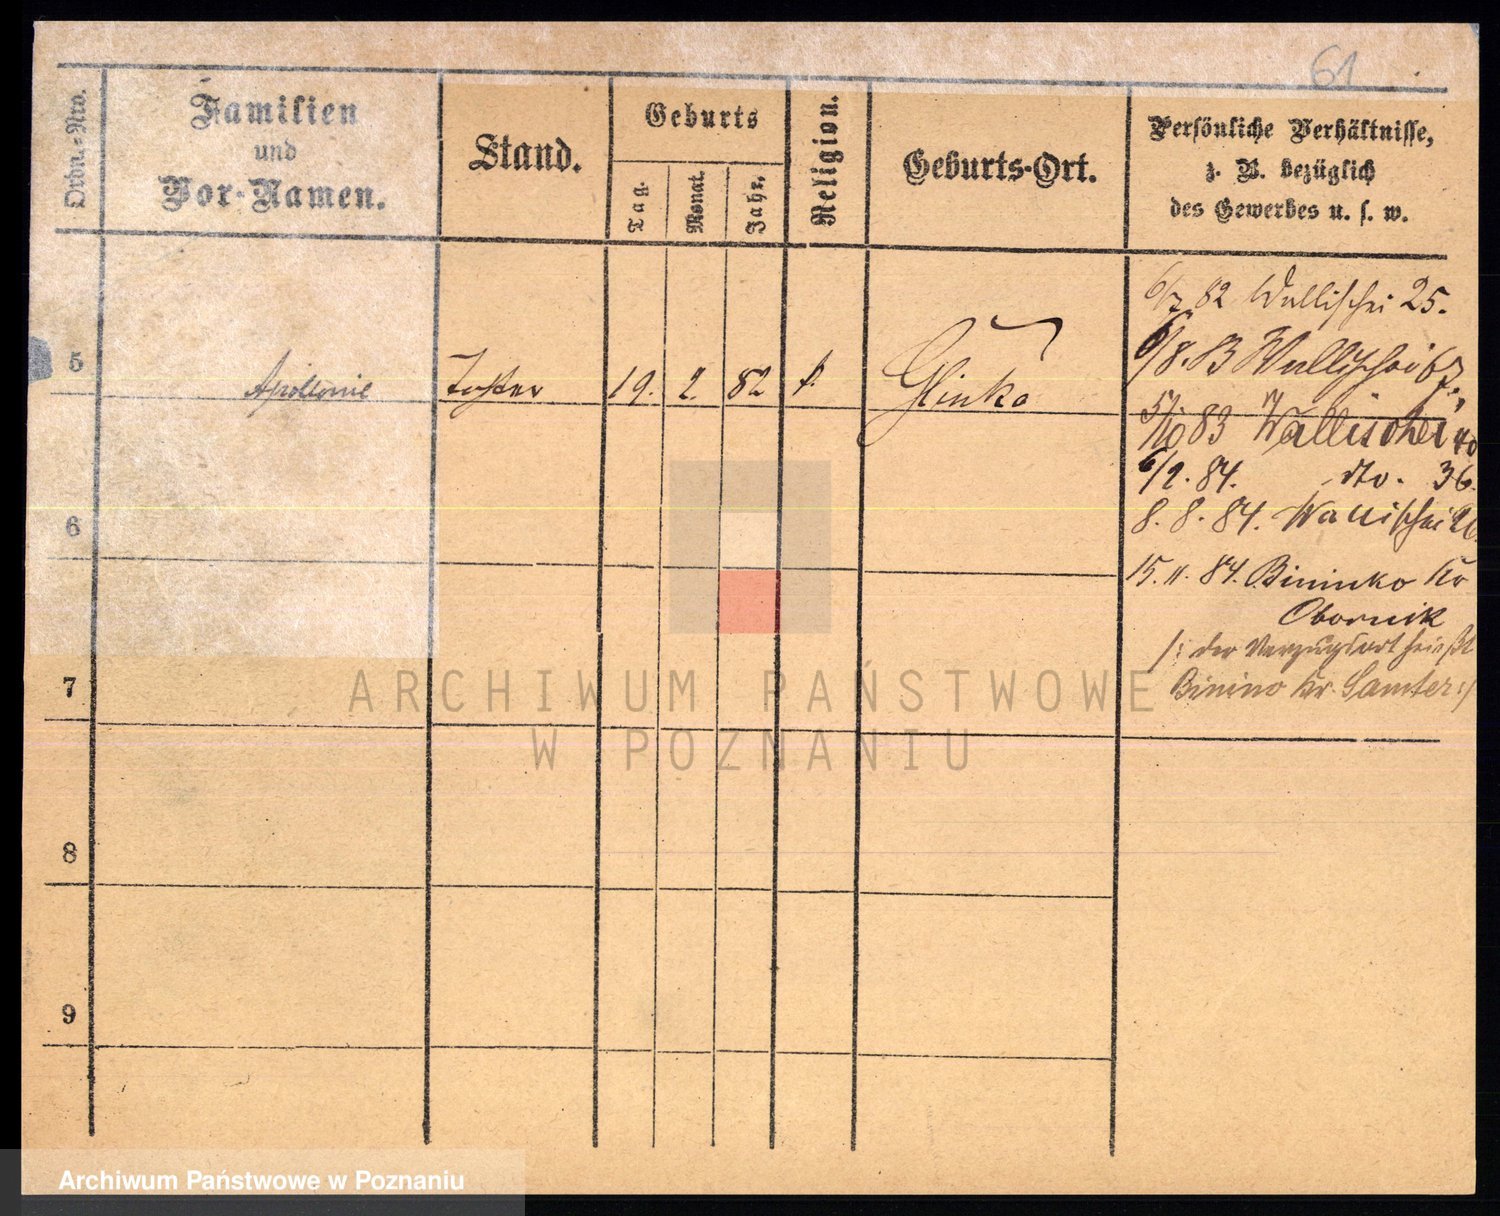 61
Ordn.-Nro.
Familien
und
Vor-Namen.
Stand.
Geburts
Tag.
Monat.
Jahr.
Religion.
Geburts-Ort.
Persönliche Verhältnisse,
z. B. bezüglich
des Gewerbes u. s. w.
5 Apollonie 19. 2. 82 Glinko
6/7. 82 Wallischei 25.
6/8. 83 Wallischei 67.
5/10 83 Wallischei 40
6/2. 84. dto. 36.
8. 8. 84. Wallischei
15. 11. 84. Bininko Kr
Obornik
/: der Verzugsort heißt
Binino Kr. Samter :/
6
7
8
9
ARCHIWUM PAŃSTWOWE
W POZNANIU
Archiwum Państwowe w Poznaniu